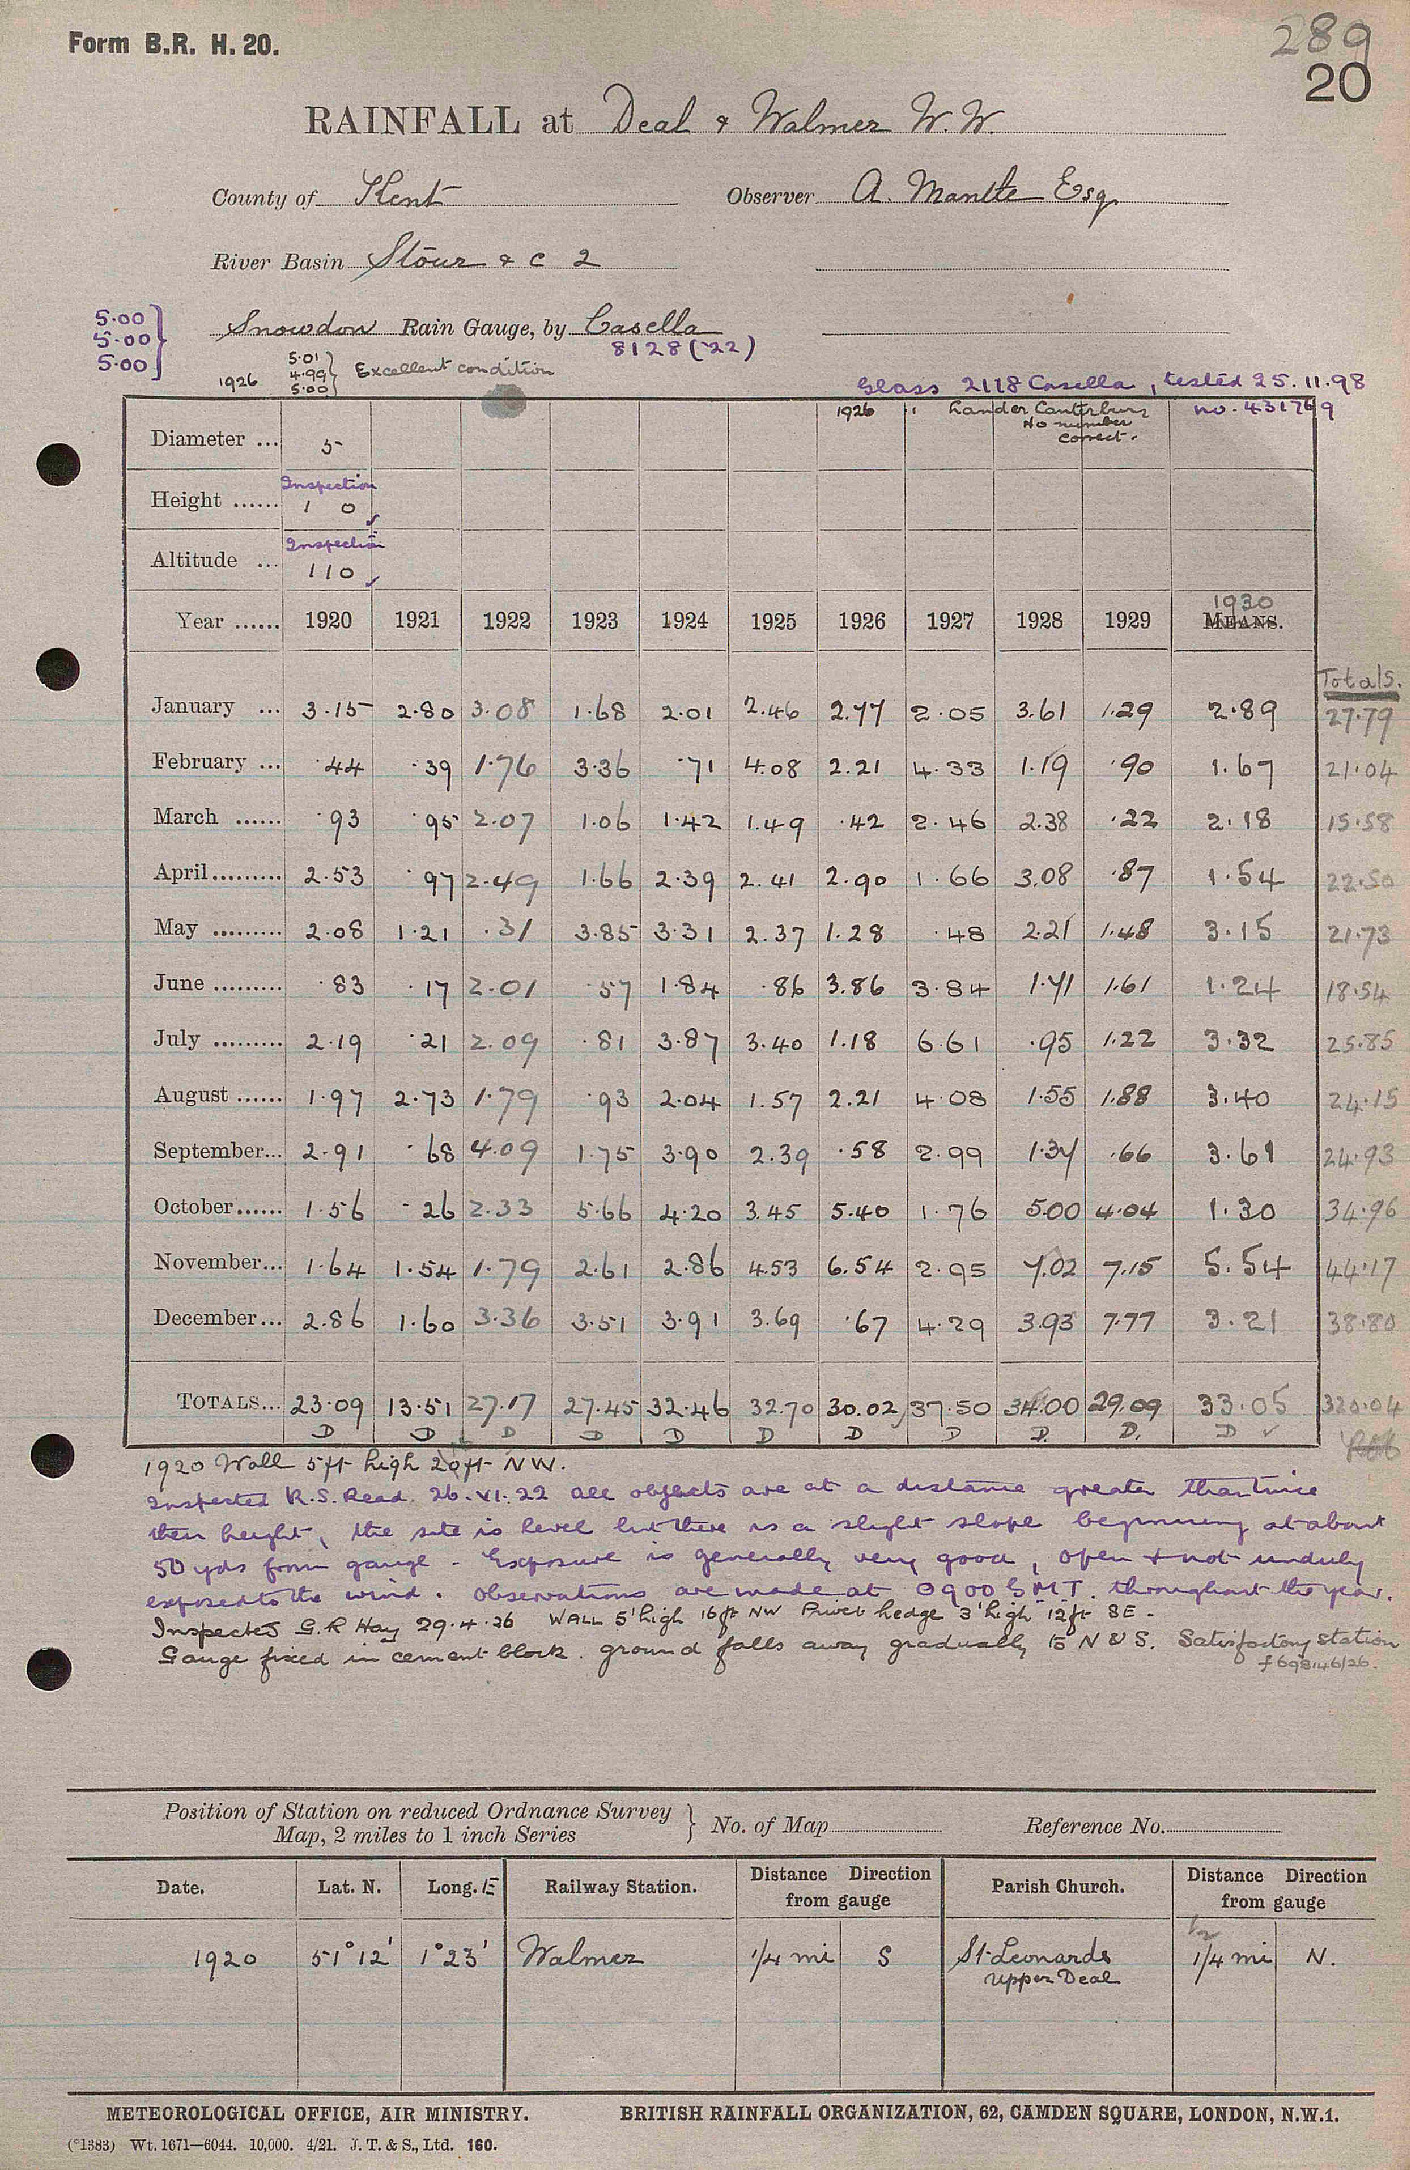 Form B.R. H. 20.
289
20
RAINFALL at Deal & Walmer W.W.
County of Kent Observer A. Mantle Esq
River Basin Stour & C 2
5.00
5.00
5.00
Snowdon Rain Gauge, by Casella
8128 ('22)
1926 5.01 4.99 5.00 Excellent condition
Glass 2118 Casella, tested 25.11.98
no. 431769
1926 " Lander Canterbury
No number
correct.
Diameter ... 5
Inspection
Height ...... 1 0 ✓
Inspection
Altitude ... 110 ✓
1930
Year ...... 1920 1921 1922 1923 1924 1925 1926 1927 1928 1929 MEANS.
Totals.
January ... 3.15 2.80 3.08 1.68 2.01 2.46 2.77 2.05 3.61 1.29 2.89 27.79
February ... .44 .39 1.76 3.36 .71 4.08 2.21 4.33 1.19 .90 1.67 21.04
March ...... .93 .95 2.07 1.06 1.42 1.49 .42 2.46 2.38 .22 2.18 15.58
April......... 2.53 .97 2.49 1.66 2.39 2.41 2.90 1.66 3.08 .87 1.54 22.50
May ......... 2.08 1.21 .31 3.85 3.31 2.37 1.28 .48 2.21 1.48 3.15 21.73
June ......... .83 .17 2.01 .57 1.84 .86 3.86 3.84 1.71 1.61 1.24 18.54
July ......... 2.19 .21 2.09 .81 3.87 3.40 1.18 6.61 .95 1.22 3.32 25.85
August ...... 1.97 2.73 1.79 .93 2.04 1.57 2.21 4.08 1.55 1.88 3.40 24.15
September... 2.91 .68 4.09 1.75 3.90 2.39 .58 2.99 1.37 .66 3.61 24.93
October...... 1.56 .26 2.33 5.66 4.20 3.45 5.40 1.76 5.00 4.04 1.30 34.96
November... 1.64 1.54 1.79 2.61 2.86 4.53 6.54 2.95 7.02 7.15 5.54 44.17
December... 2.86 1.60 3.36 3.51 3.91 3.69 .67 4.29 3.93 7.77 3.21 38.80
TOTALS... 23.09 13.51 27.17 27.45 32.46 32.70 30.02 37.50 34.00 29.09 33.05 320.04
D D D D D D D D D. D. D ✓
1920 Wall 5ft high 20ft NW.
Inspected R.S. Read. 26.VI.22 all objects are at a distance greater than twice
their height, the site is level but there is a slight slope beginning at about
50 yds from gauge. Exposure is generally very good, open & not unduly
exposed to the wind. Observations are made at 0900 GMT. throughout the year.
Inspected G.R Hay 29.4.26 WALL 5' high 16ft NW Privet hedge 3' high 12ft SE.
Gauge fixed in cement block. ground falls away gradually to N & S. Satisfactory station
Position of Station on reduced Ordnance Survey Map, 2 miles to 1 inch Series } No. of Map Reference No.
Date. Lat. N. Long. E Railway Station. Distance Direction from gauge Parish Church. Distance Direction from gauge
1/2
1920 51°12' 1°23' Walmer 1/4 mi S St Leonards 1/4 mi N.
Upper Deal
METEOROLOGICAL OFFICE, AIR MINISTRY. BRITISH RAINFALL ORGANIZATION, 62, CAMDEN SQUARE, LONDON, N.W.1.
(*1383) Wt. 1671—6044. 10,000. 4/21. J. T. & S., Ltd. 160.